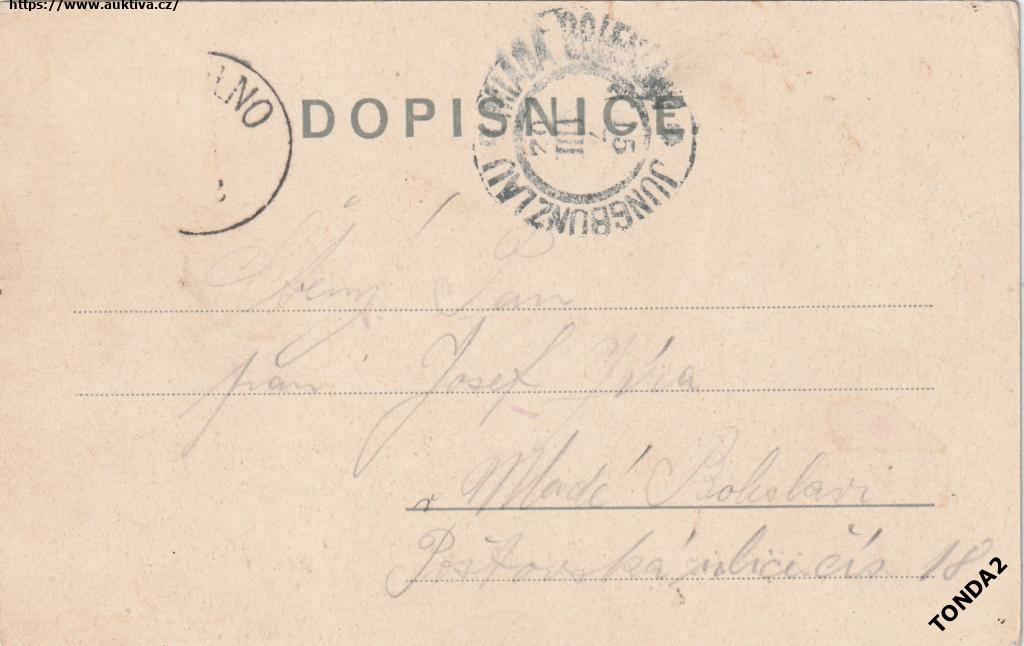 https://www.auktiva.cz/
LNO
DOPISNICE
MLADA BOLESLAV
JUNGBUNZLAU
Pán
pan Josef Jíra
v Mladé Boleslavi
Poštovská ulici čís 18
TONDA2